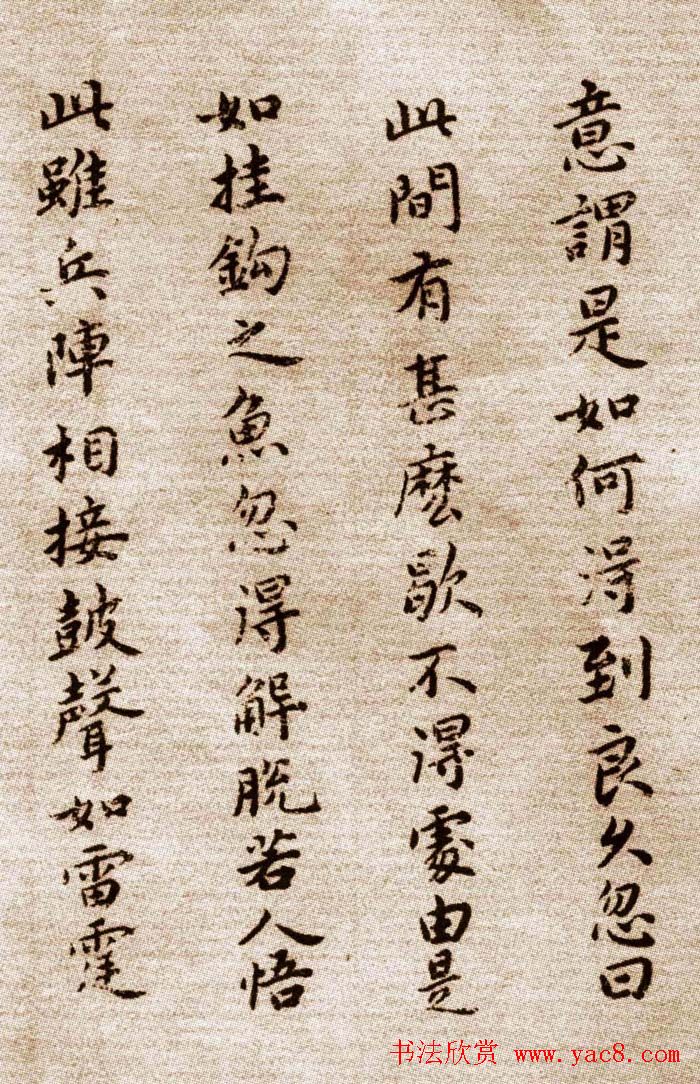 意謂是如何得到良久忽曰
此間有甚麼歇不得處由是
如挂鈎之魚忽得解脫若人悟
此雖兵陣相接鼓聲如雷霆
书法欣赏 www.yac8.com